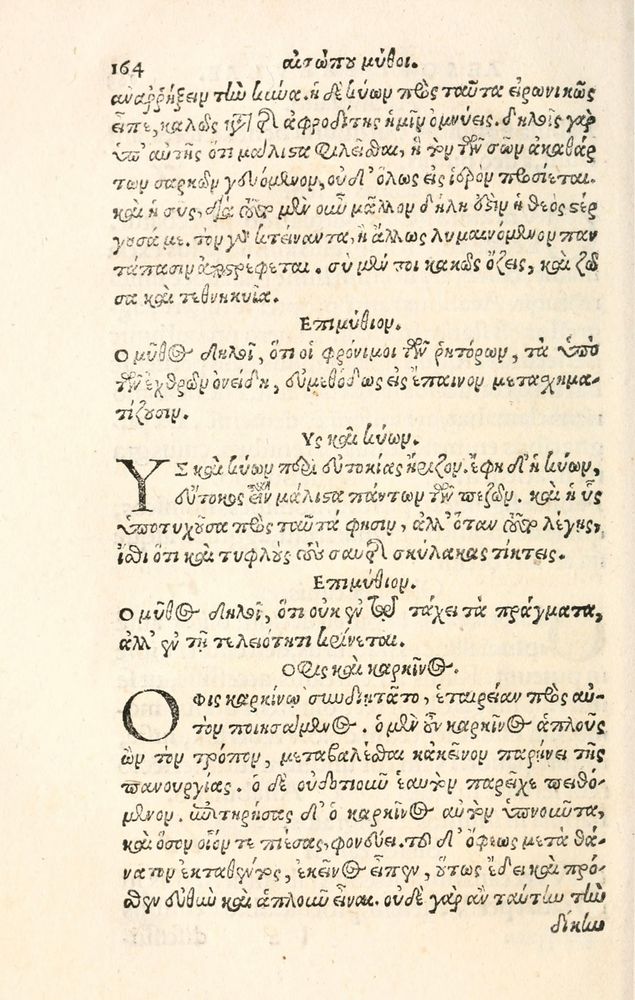 164 αἰσώπου μῦθοι.
ἀναῤῥήξειν τὴν κύνα. ἡ δὲ κύων πρὸς ταῦτα εἰρωνικῶς
εἶπε, καλῶς κατὰ τῆς ἀφροδίτης ἡμῖν ὀμνύεις. δηλοῖς γὰρ
ὑπ' αὐτῆς ὅτι μάλιστα φιλεῖσθαι, ἣ τὸν τῶν σῶν ἀκαθάρ
των σαρκῶν γευόμενον, οὐδ' ὅλως εἰς ἱερὸν προσίεται.
καὶ ἡ σῦς, διὰ τοῦτο μὲν οὖν μᾶλλον δήλη ἐστὶν ἡ θεὸς στέρ
γουσά με. τὸν γὰρ κτείναντα, ἢ ἄλλως λυμαινόμενον παν
τάπασιν ἀποστρέφεται. σὺ μέν τοι κακῶς ὄζεις, καὶ ζῶ
σα καὶ τεθνηκυῖα.
Επιμύθιον.
Ο μῦθος δηλοῖ, ὅτι οἱ φρόνιμοι τῶν ῥητόρων, τὰ ὑπὸ
τῶν ἐχθρῶν ὀνείδη, εὐμεθόδως εἰς ἔπαινον μετασχημα-
τίζουσιν.
Υς καὶ κύων.
ΥΣ καὶ κύων περὶ εὐτοκίας ἤριζον. ἔφη δ' ἡ κύων,
εὔτοκος εἶναι μάλιστα πάντων τῶν πεζῶν. καὶ ἡ ὗς
ὑποτυχοῦσα πρὸς ταῦτά φησιν, ἀλλ' ὅταν τοῦτο λέγῃς,
ἴσθι ὅτι καὶ τυφλοὺς τοὺς σαυτῆς σκύλακας τίκτεις.
Επιμύθιον.
Ο μῦθος δηλοῖ, ὅτι οὐκ ἐν τῷ τάχει τὰ πράγματα,
ἀλλ' ἐν τῇ τελειότητι κρίνεται.
Οφις καὶ καρκῖνος.
ΟΦΙΣ καρκίνῳ συνδιῃτᾶτο, ἑταιρείαν πρὸς αὐ-
τὸν ποιησάμενος. ὁ μὲν οὖν καρκῖνος ἁπλοῦς
ὢν τὸν τρόπον, μεταβαλέσθαι κἀκεῖνον παρῄνει τῆς
πανουργίας. ὁ δὲ οὐδοτιοῦν ἑαυτὸν παρεῖχε πειθό-
μενον. ἐπιτηρήσας δ' ὁ καρκῖνος αὐτὸν ὑπνοῦντα,
καὶ ὅσον οἷόν τε πιέσας, φονεύει. τοῦ δ' ὄφεως μετὰ θά-
νατον ἐκταθέντος, ἐκεῖνος εἶπεν, οὕτως ἔδει καὶ πρό-
σθεν εὐθὺν καὶ ἁπλοῦν εἶναι. οὐδὲ γὰρ ἂν ταύτην τὴν
δίκην